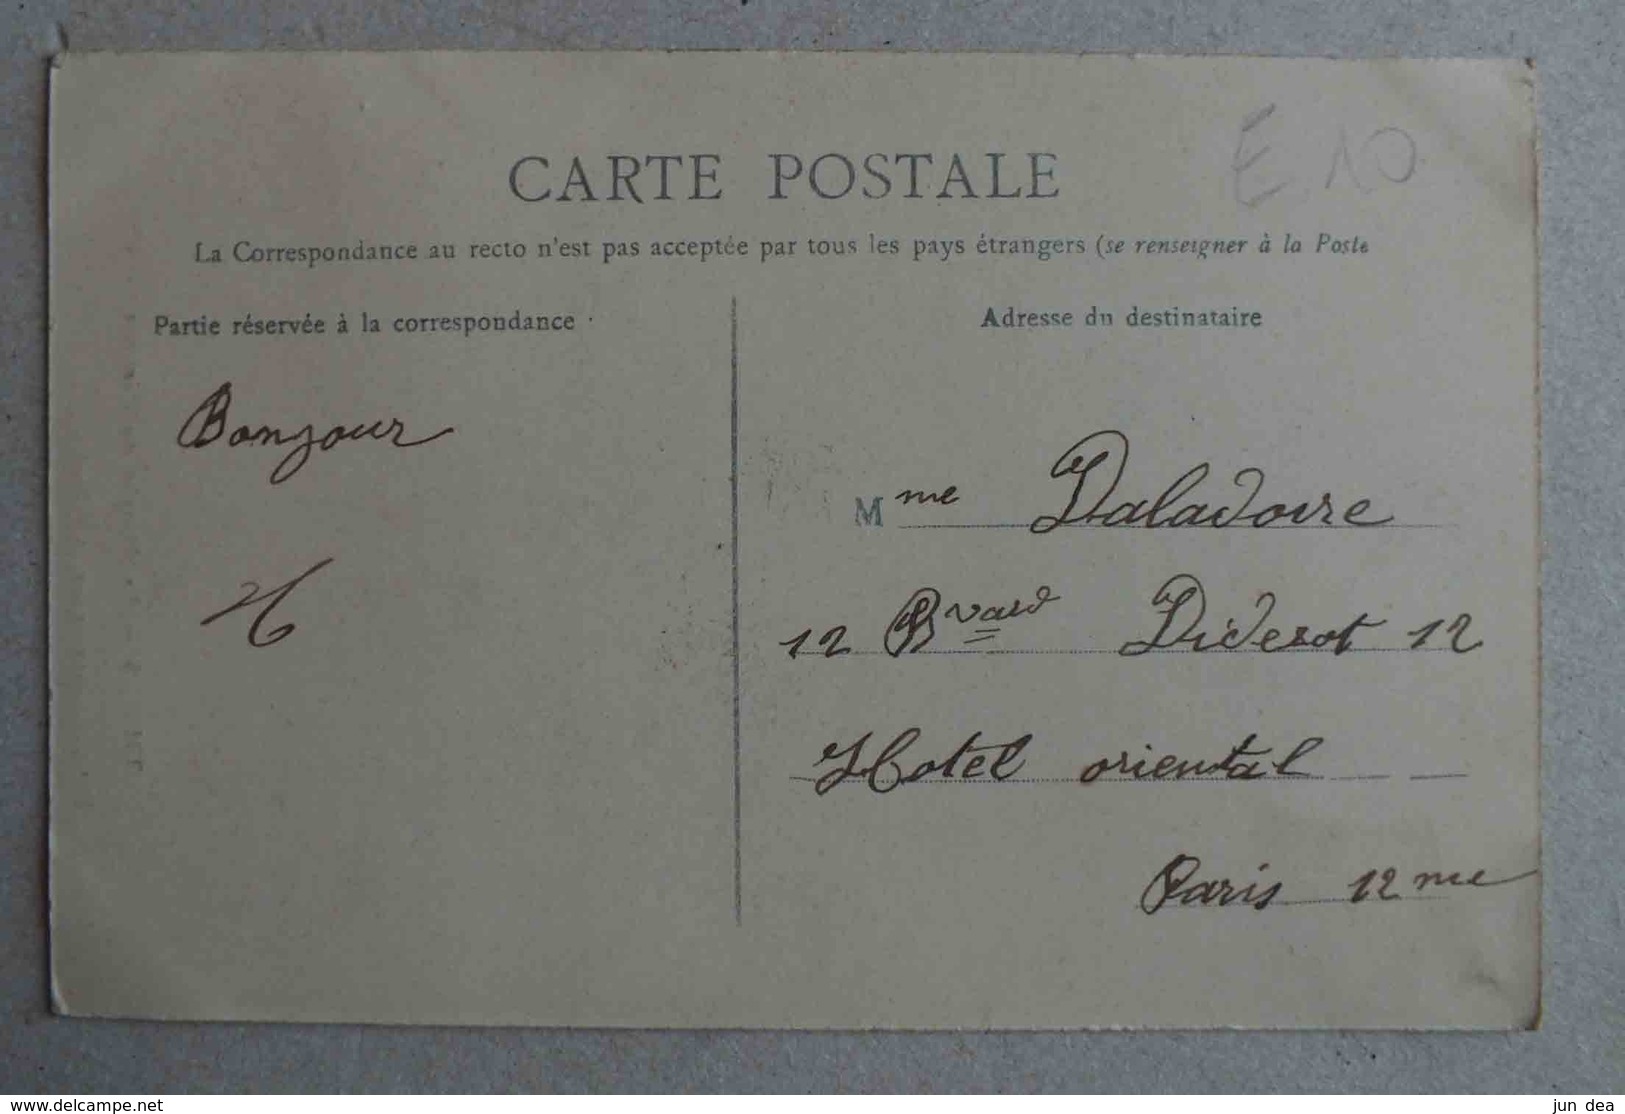 CARTE POSTALE
E 10
La Correspondance au recto n'est pas acceptée par tous les pays étrangers (se renseigner à la Poste
Partie réservée à la correspondance
Bonjour
Adresse du destinataire
Mme Daladoire
12 Bvard Diderot 12
Hotel oriental
Paris 12me
www.delcampe.net
jun dea